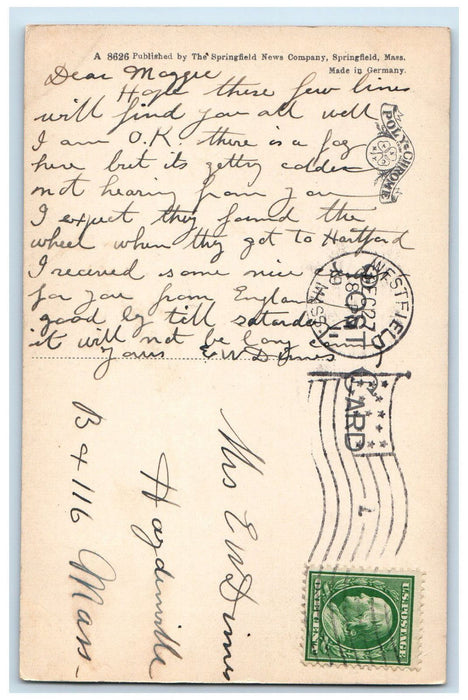 A 8626 Published by The Springfield News Company, Springfield, Mass.
Made in Germany.
POLY-CHROME
Dear Maggie
Hope these few lines
will find you all well
I am O.K. there is a fog
here but its getting colder
not hearing from you
I expect they found the
wheel when they got to Hartford
I received some nice
for you from England
good by till saturday
it will not be long
yours E W Dimes
POST CARD
WESTFIELD
MASS.
DEC 27
Mrs E W Dimes
Haydenville
Bx 116 Mass-
U.S. POSTAGE